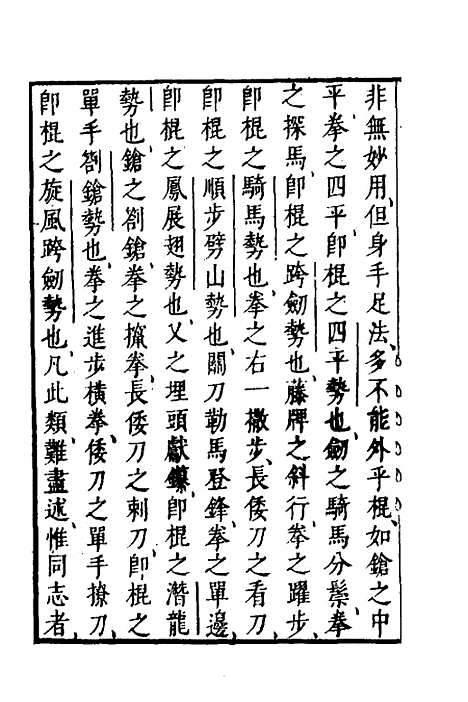 非無妙用但身手足法多不能外乎棍如鎗之中
平拳之四平即棍之四平勢也劒之騎馬分鬃拳
之探馬即棍之跨劒勢也藤牌之斜行拳之躍步
即棍之騎馬勢也拳之右一撒步長倭刀之看刀
即棍之順步劈山勢也關刀勒馬登鋒拳之單邊
即棍之鳳展翅勢也叉之埋頭獻鑽即棍之潛龍
勢也鎗之劄鎗拳之攛拳長倭刀之刺刀即棍之
單手劄鎗勢也拳之進步橫拳倭刀之單手撩刀
即棍之旋風跨劒勢也凡此類難盡述惟同志者